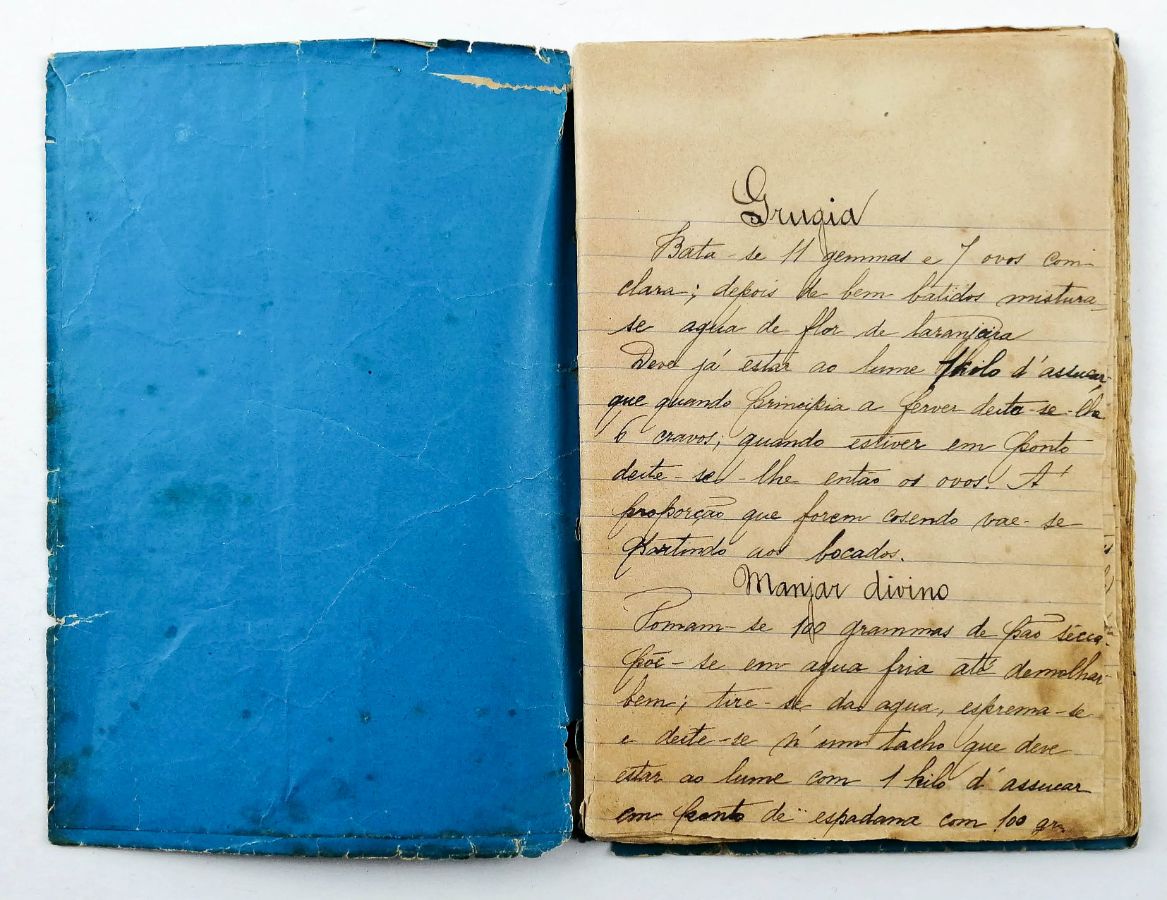 Grugia
Bata-se 11 gemmas e 7 ovos com
clara; depois de bem batidos mistura-
se agua de flor de laranjeira
Deve já estar ao lume 1 kilo d'assucar
que quando principia a ferver deita-se-lhe
6 cravos; quando estiver em ponto
deite-se-lhe então os ovos. Á
proporção que forem cosendo vae-se
partindo aos bocados.
Manjar divino
Tomam-se 100 grammas de pão
põe-se em agua fria até demolhar
bem; tire-se da agua, esprema-se
e deite-se n'um tacho que deve
estar ao lume com 1 kilo d'assucar
em ponto de espadana com 100 gr.